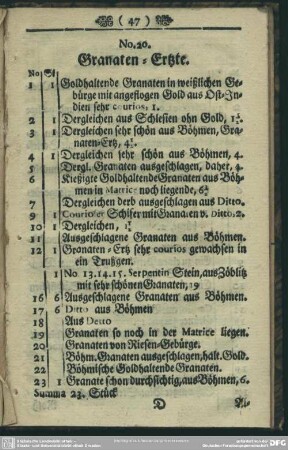 ( 47 )
No. 20.
Granaten-Ertzte.
No St
1 1 Goldhaltende Granaten in weißlichen Ge-
bürge mit angeflogen Gold aus Ost-In-
dien sehr courios, 1.
2 1 Dergleichen aus Schlesien ohn Gold,
3 1 Dergleichen sehr schön aus Böhmen, Gra-
naten-Ertz,
4 1 Dergleichen sehr schön aus Böhmen, 4.
5 Dergl. Granaten ausgeschlagen, daher, 4.
6 Kießigte Goldhaltende Granaten aus Böh
men in Matrice noch liegende,
7 Dergleichen derb ausgeschlagen aus Ditto.
9 Courioser Schifer mit Granaten v. Ditto, 2.
10 Dergleichen,
11 Ausgeschlagene Granaten aus Böhmen.
12 1 Granaten-Ertz sehr courios gewachsen in
ein Trußgen.
1 No. 13. 14. 15. Serpentin Stein, aus Zöblitz
mit sehr schönen Granaten, 19
16 6 Ausgeschlagene Granaten aus Böhmen.
17 6 Ditto aus Böhmen
18 Aus Detto
19 Granaten so noch in der Matrice liegen.
20 Granaten von Riesen-Gebürge.
21 Böhm. Granaten ausgeschlagen, halt. Gold.
22 Böhmische Goldhaltende Granaten.
23 1 Granate schon durchsichtig, aus Böhmen, 6.
Summa 23. Stück
D